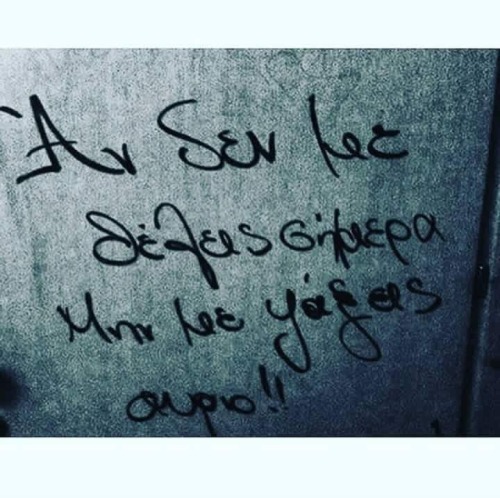 Άν δεν με
θέλεις σήμερα
Μην με ψάξεις
αυριο!!